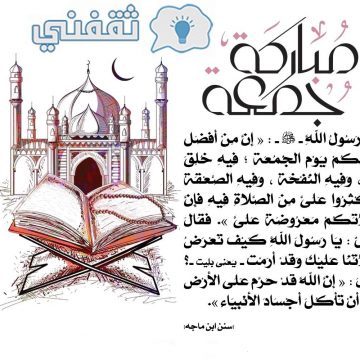 ثقفني
مباركة
جمعة
رسول الله ـ ﷺ ـ : « إن من أفضل
كم يوم الجمعة ؛ فيه خلق
، وفيه النفخة ، وفيه الصعقة
كثروا علىّ من الصلاة فيه فإن
تكم معروضة علىّ ». فقال
: يا رسول الله كيف تعرض
تنا عليك وقد أرمت ـ يعنى بليت ـ؟
: « إن الله قد حرم على الأرض
أن تأكل أجساد الأنبياء ».
(سنن ابن ماجه)